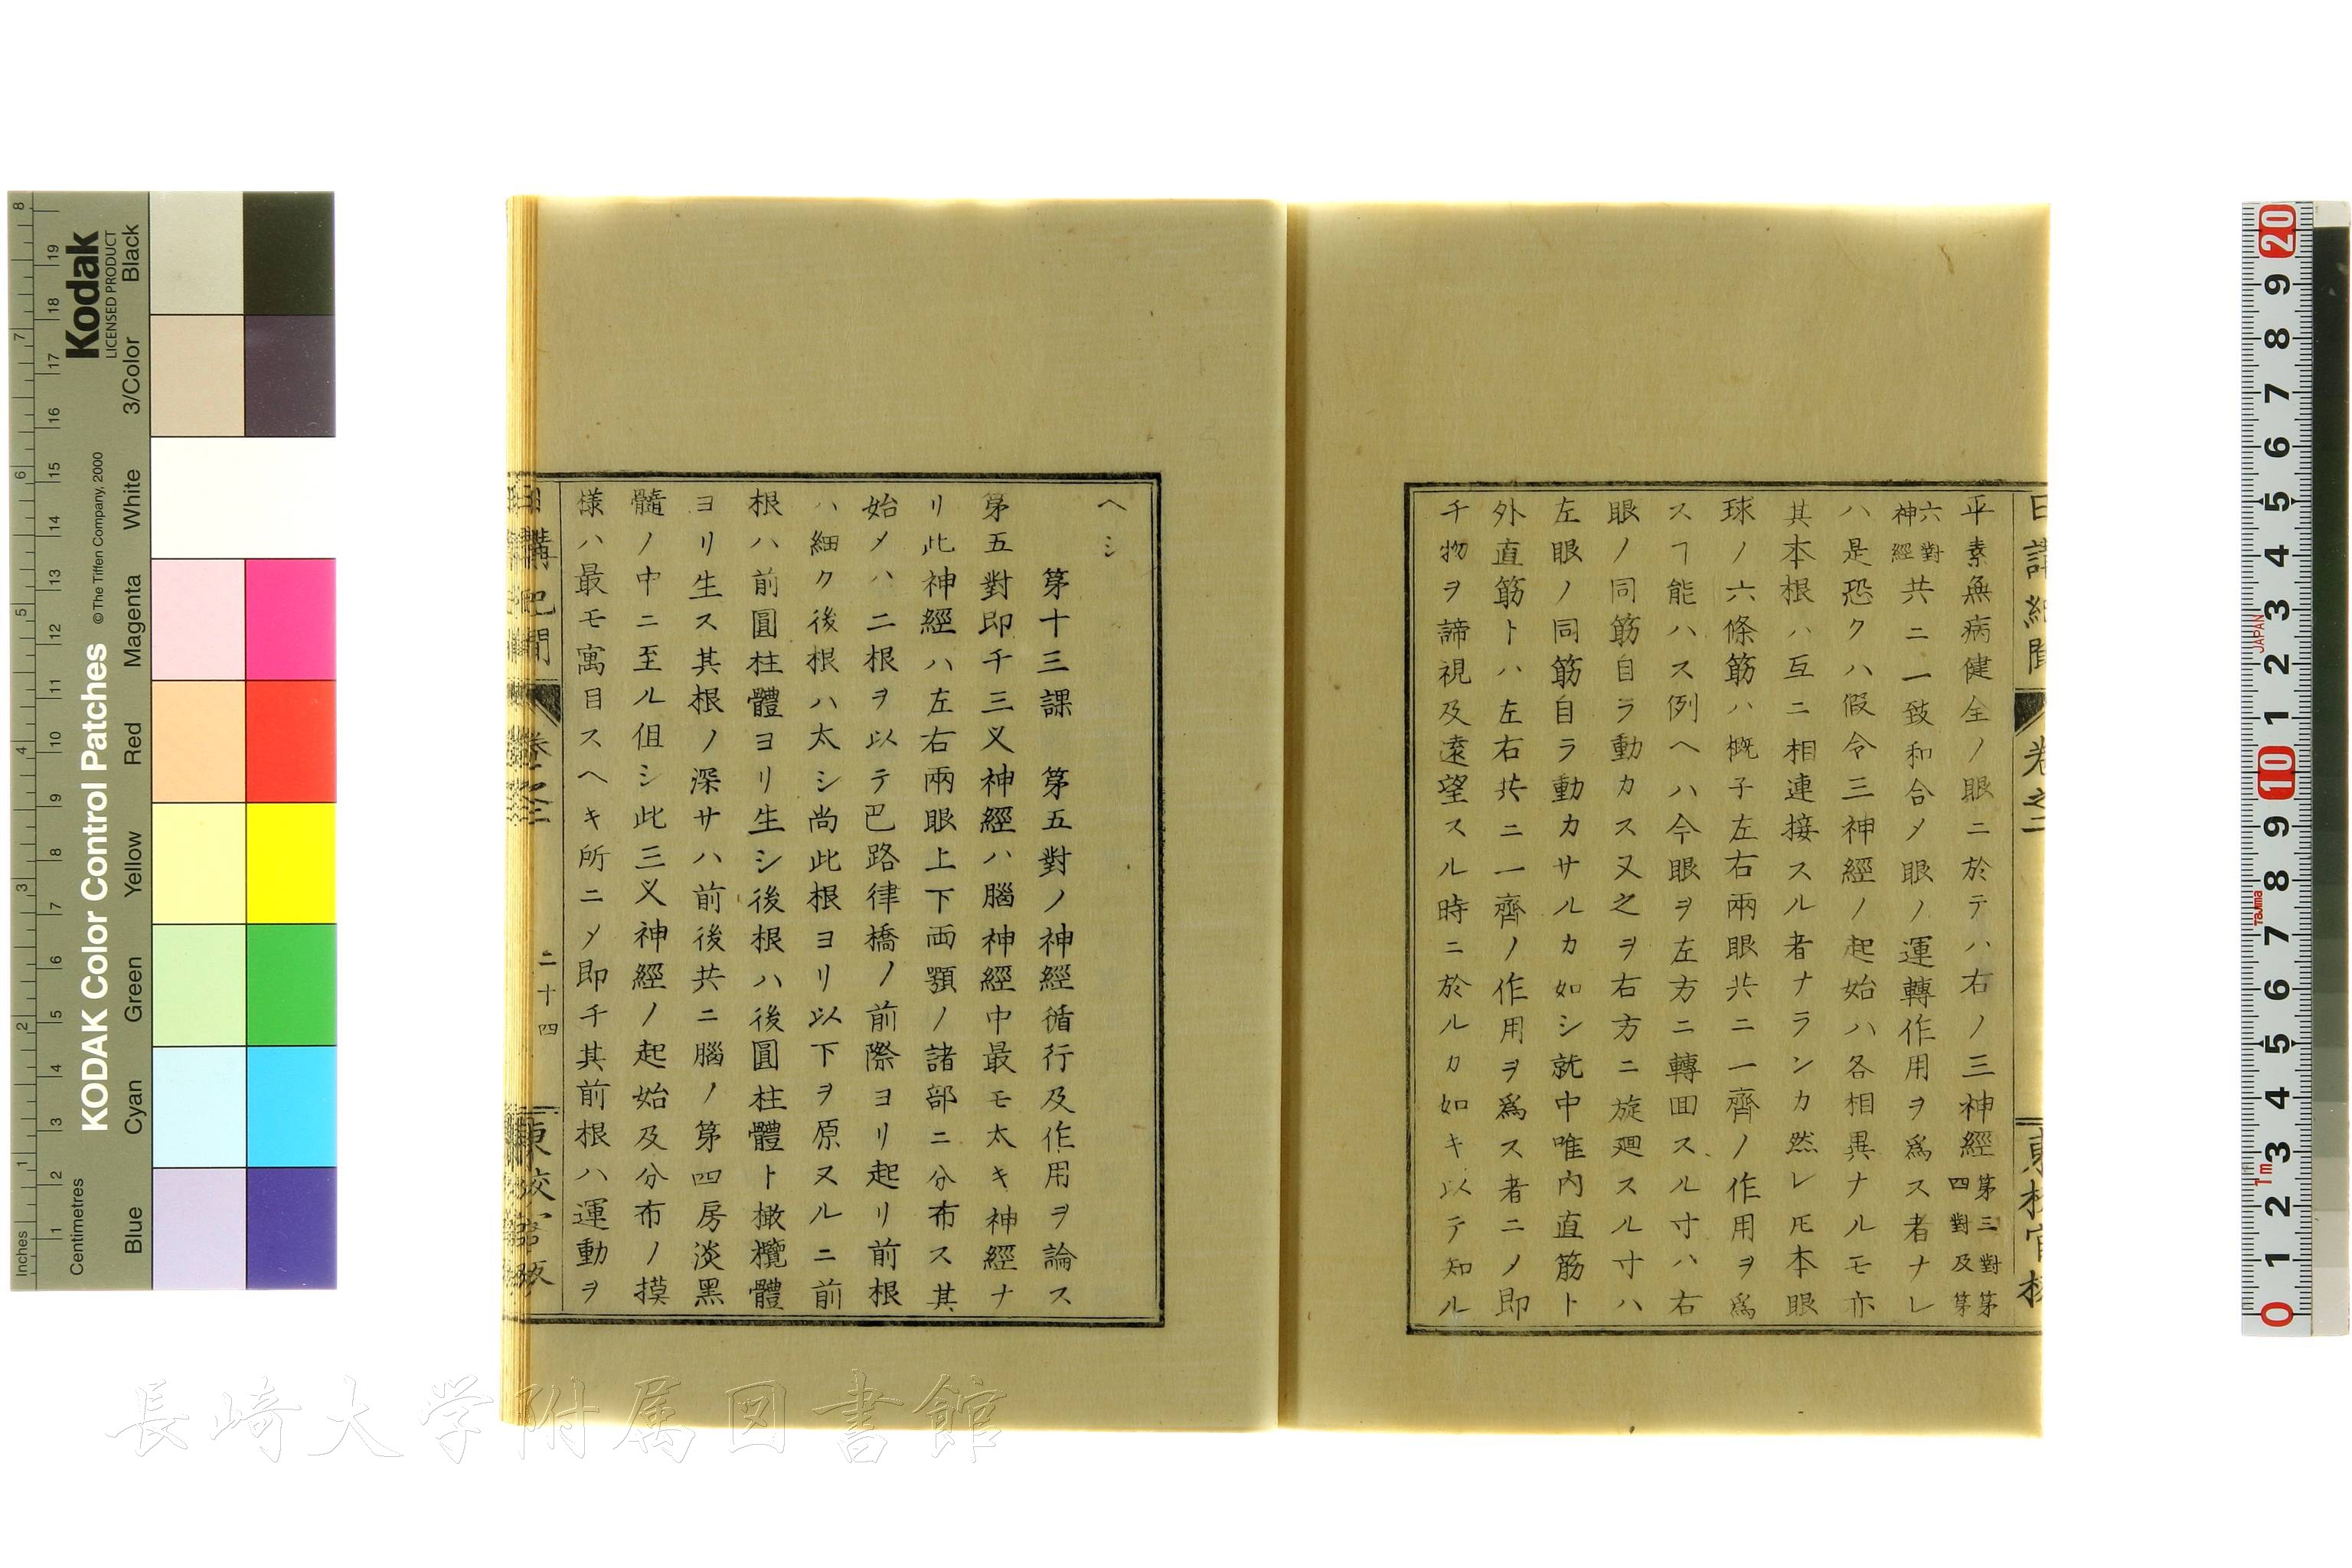 平素無病健全ノ眼ニ於テハ右ノ三神經第三對第四對及第
六對神經共ニ一致和合〆眼ノ運轉作用ヲ爲ス者ナレ
ハ是恐クハ假令三神經ノ起始ハ各相異ナルモ亦
其本根ハ互ニ相連接スル者ナランカ然レ𪜈本眼
球ノ六條筋ハ概子左右兩眼共ニ一齊ノ作用ヲ爲
スヿ能ハス例ヘハ今眼ヲ左方ニ轉回スル寸ハ右
眼ノ同筋自ラ動カス又之ヲ右方ニ旋廻スル寸ハ
左眼ノ同筋自ラ動カサルカ如シ就中唯内直筋ト
外直筋トハ左右共ニ一齊ノ作用ヲ爲ス者ニノ即
チ物ヲ諦視及遠望スル時ニ於ルカ如キ以テ知ル
ヘシ
第十三課 第五對ノ神經循行及作用ヲ論ス
第五對即チ三叉神經ハ腦神經中最モ太キ神經ナ
リ此神經ハ左右兩眼上下両顎ノ諸部ニ分布ス其
始メハ二根ヲ以テ巴路律橋ノ前際ヨリ起リ前根
ハ細ク後根ハ太シ尚此根ヨリ以下ヲ原ヌルニ前
根ハ前圓柱體ヨリ生シ後根ハ後圓柱體ト橄欖體
ヨリ生ス其根ノ深サハ前後共ニ腦ノ第四房淡黑
髓ノ中ニ至ル伹シ此三叉神經ノ起始及分布ノ摸
様ハ最モ寓目スヘキ所ニ〆即チ其前根ハ運動ヲ
二十四
長崎大学附属図書館
Kodak
LICENSED PRODUCT
KODAK Color Control Patches
©The Tiffen Company, 2000
Inches
1 2 3 4 5 6 7 8
Centimetres
1 2 3 4 5 6 7 8 9 10 11 12 13 14 15 16 17 18 19
Blue
Cyan
Green
Yellow
Red
Magenta
White
3/Color
Black
0 1 2 3 4 5 6 7 8 9 10 1 2 3 4 5 6 7 8 9 20
1m
Tajima
JAPAN